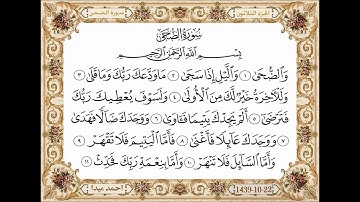 الجزء الثلاثون
سورة الضحى
سُورَةُ الضُّحَى
بِسْمِ اللَّهِ الرَّحْمَٰنِ الرَّحِيمِ
وَالضُّحَى ١ وَالَّيْلِ إِذَا سَجَى ٢ مَا وَدَّعَكَ رَبُّكَ وَمَا قَلَى ٣
وَلَلْآخِرَةُ خَيْرٌ لَّكَ مِنَ الْأُولَى ٤ وَلَسَوْفَ يُعْطِيكَ رَبُّكَ
فَتَرْضَى ٥ أَلَمْ يَجِدْكَ يَتِيمًا فَآوَى ٦ وَوَجَدَكَ ضَالًّا فَهَدَى
٧ وَوَجَدَكَ عَائِلًا فَأَغْنَى ٨ فَأَمَّا الْيَتِيمَ فَلَا تَقْهَرْ ٩
وَأَمَّا السَّائِلَ فَلَا تَنْهَرْ ١٠ وَأَمَّا بِنِعْمَةِ رَبِّكَ فَحَدِّثْ ١١
احمد عيدا
1439-10-22